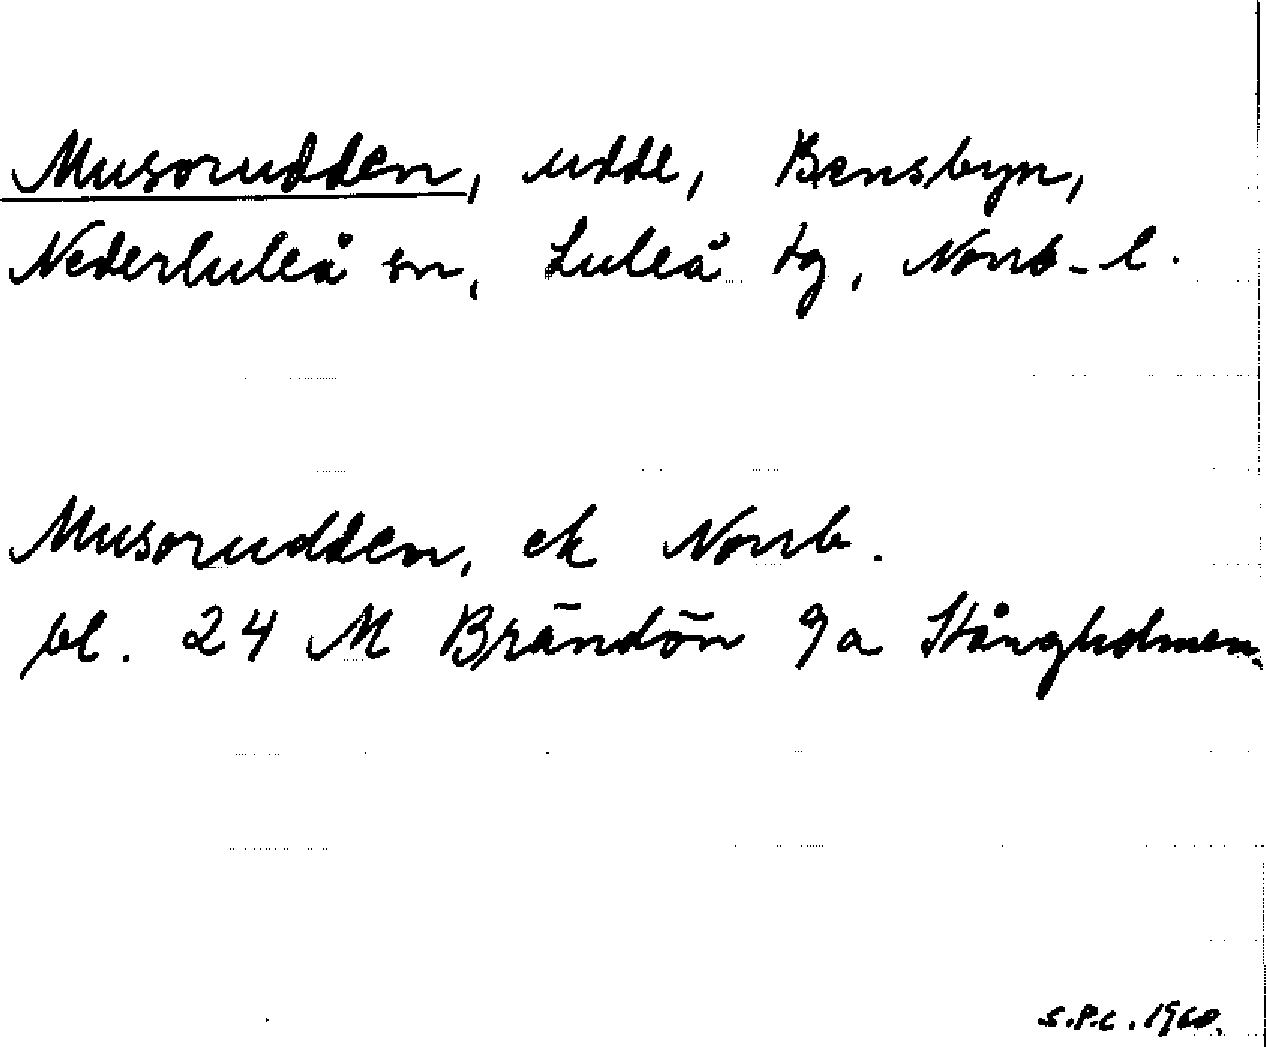 Musorudden, udde, Bensbyn,
Nederluleå sn, Luleå tg, Norrb-l.
Musorudden, ek Norrb.
bl. 24 M Brändön 9a Stångholmen.
S.P.C. 1960.